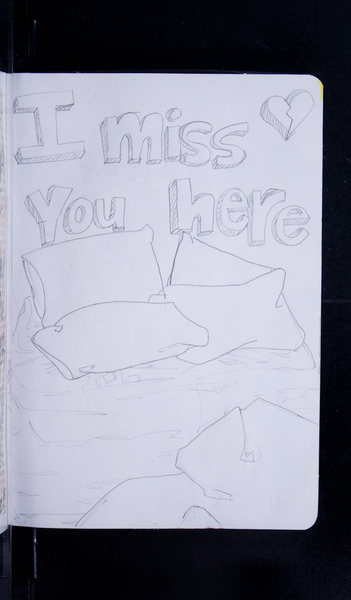 I miss
You here